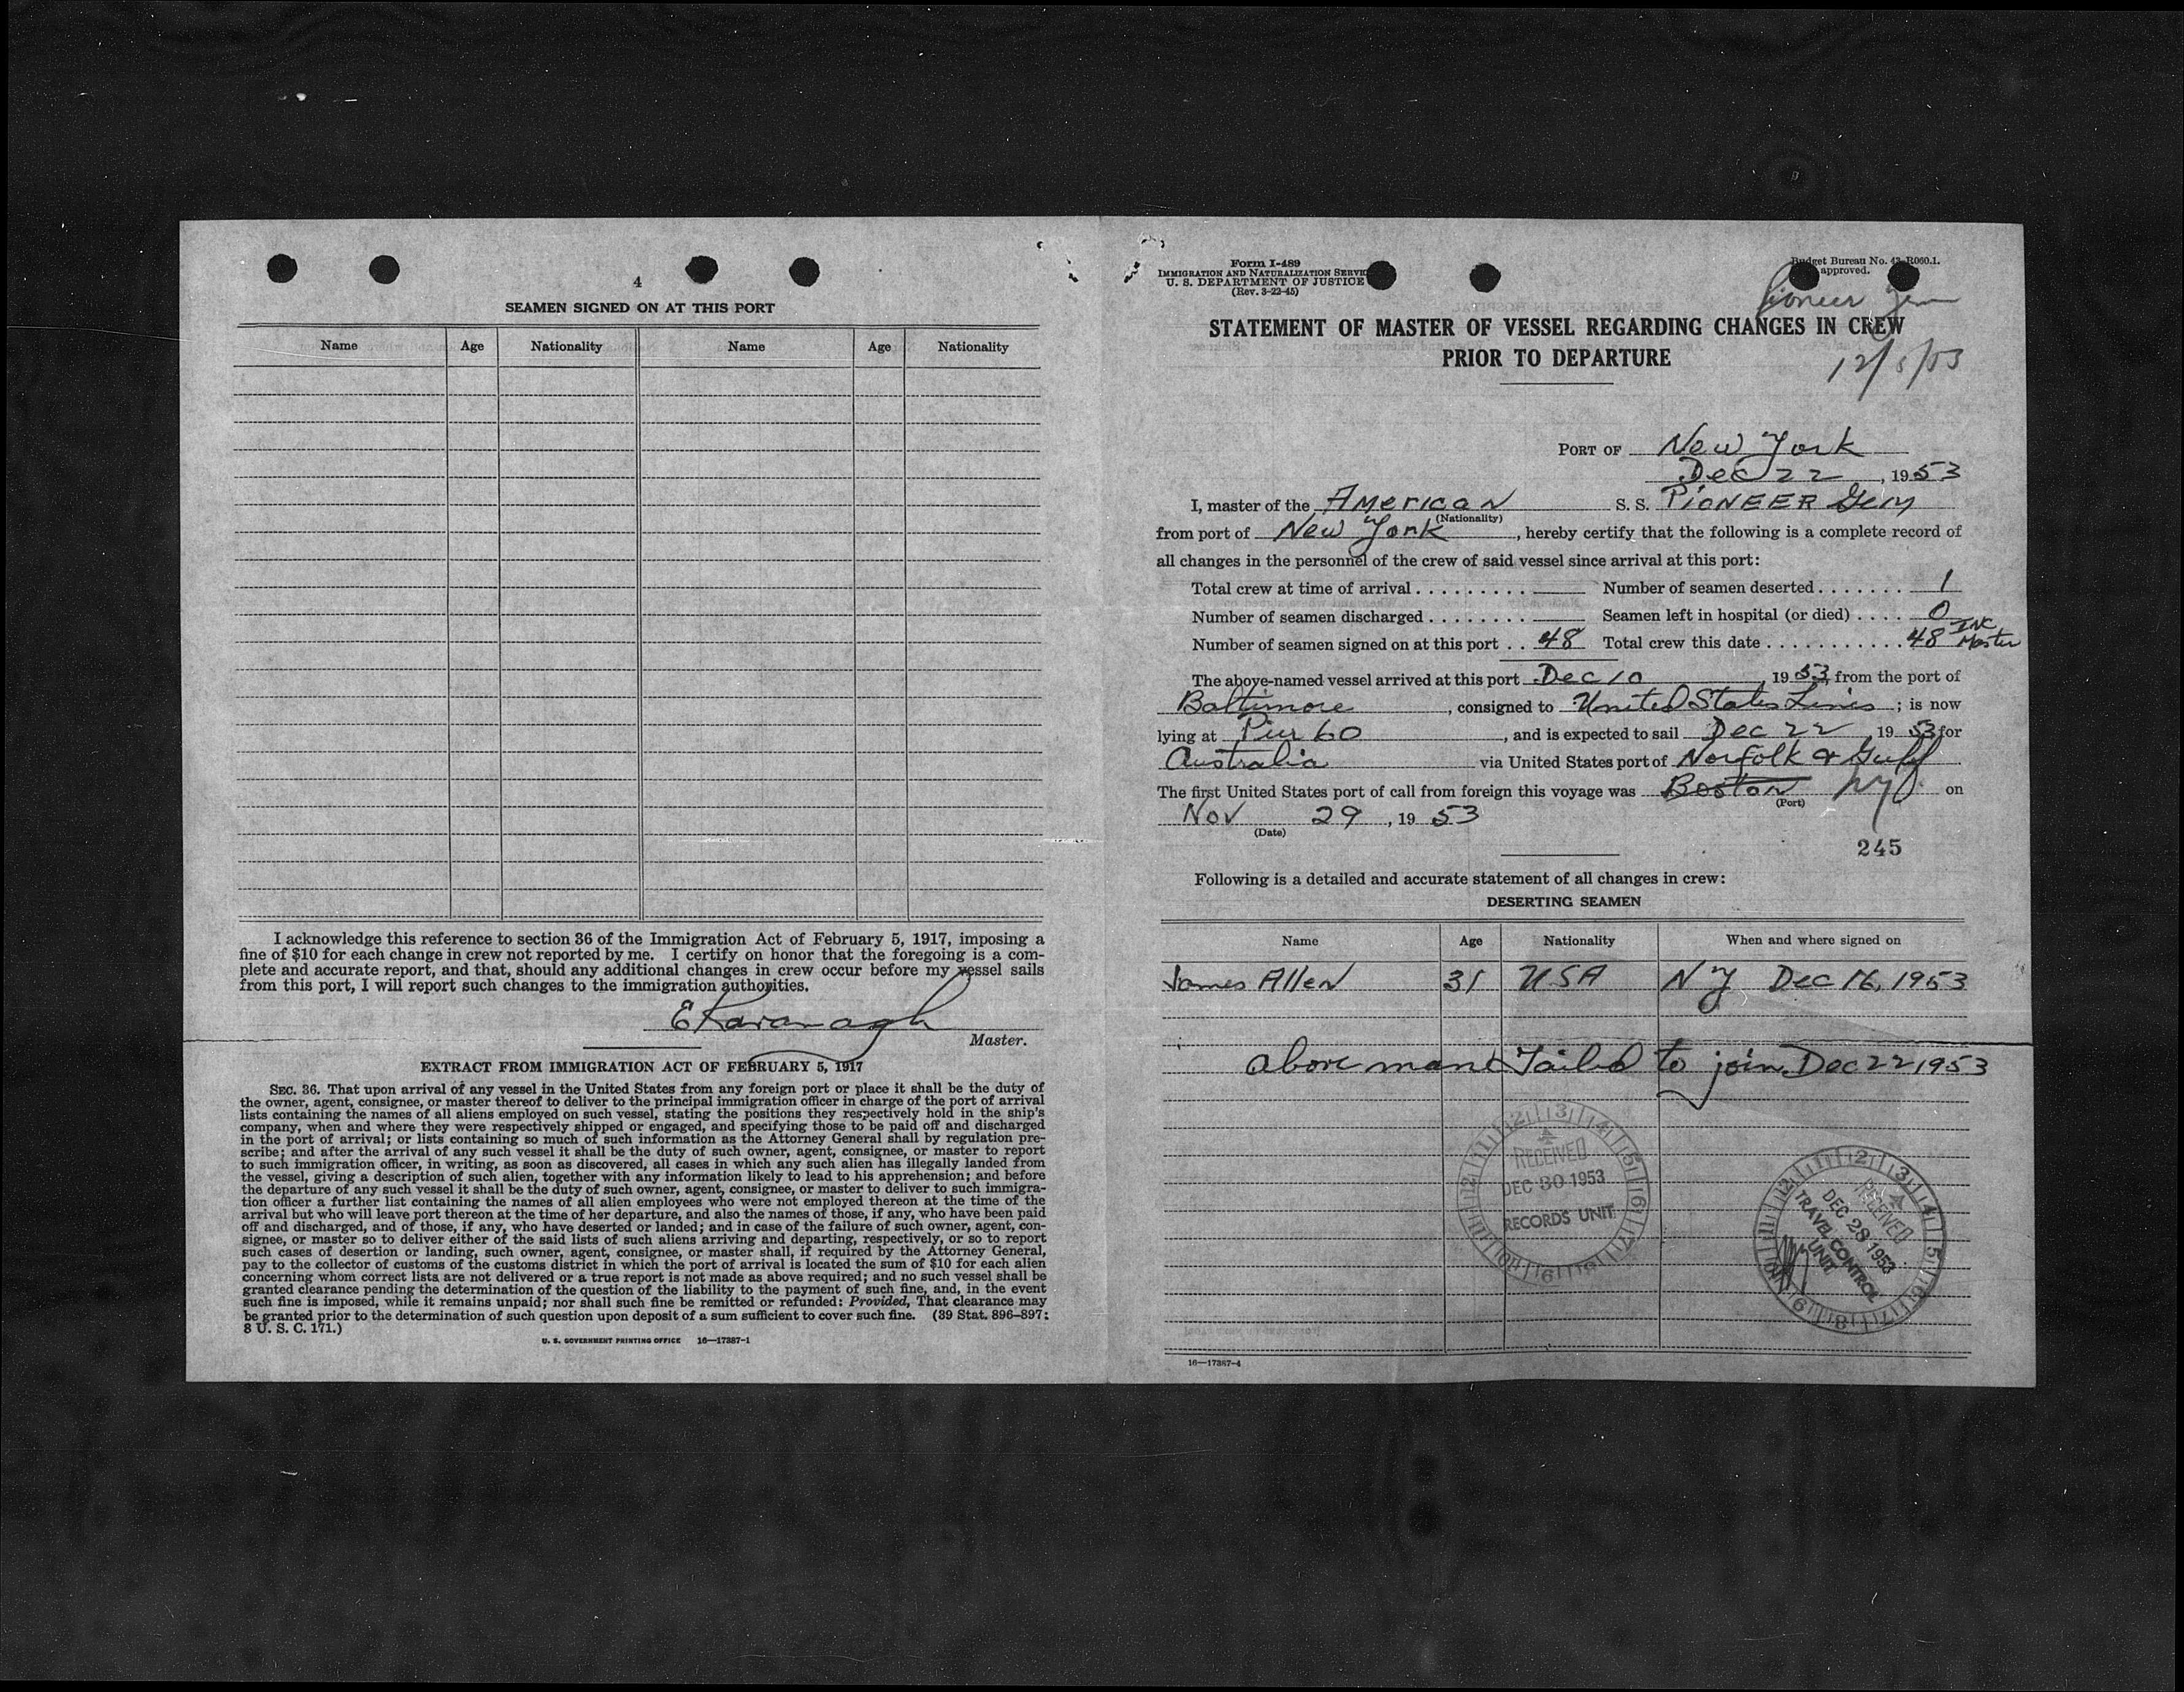 4
SEAMEN SIGNED ON AT THIS PORT
Name Age Nationality Name Age Nationality
I acknowledge this reference to section 36 of the Immigration Act of February 5, 1917, imposing a
fine of $10 for each change in crew not reported by me. I certify on honor that the foregoing is a com-
plete and accurate report, and that, should any additional changes in crew occur before my vessel sails
from this port, I will report such changes to the immigration authorities.
E Kavanagh
Master.
EXTRACT FROM IMMIGRATION ACT OF FEBRUARY 5, 1917
SEC. 36. That upon arrival of any vessel in the United States from any foreign port or place it shall be the duty of
the owner, agent, consignee, or master thereof to deliver to the principal immigration officer in charge of the port of arrival
lists containing the names of all aliens employed on such vessel, stating the positions they respectively hold in the ship's
company, when and where they were respectively shipped or engaged, and specifying those to be paid off and discharged
in the port of arrival; or lists containing so much of such information as the Attorney General shall by regulation pre-
scribe; and after the arrival of any such vessel it shall be the duty of such owner, agent, consignee, or master to report
to such immigration officer, in writing, as soon as discovered, all cases in which any such alien has illegally landed from
the vessel, giving a description of such alien, together with any information likely to lead to his apprehension; and before
the departure of any such vessel it shall be the duty of such owner, agent, consignee, or master to deliver to such immigra-
tion officer a further list containing the names of all alien employees who were not employed thereon at the time of the
arrival but who will leave port thereon at the time of her departure, and also the names of those, if any, who have been paid
off and discharged, and of those, if any, who have deserted or landed; and in case of the failure of such owner, agent, con-
signee, or master so to deliver either of the said lists of such aliens arriving and departing, respectively, or so to report
such cases of desertion or landing, such owner, agent, consignee, or master shall, if required by the Attorney General,
pay to the collector of customs of the customs district in which the port of arrival is located the sum of $10 for each alien
concerning whom correct lists are not delivered or a true report is not made as above required; and no such vessel shall be
granted clearance pending the determination of the question of the liability to the payment of such fine, and, in the event
such fine is imposed, while it remains unpaid; nor shall such fine be remitted or refunded: Provided, That clearance may
be granted prior to the determination of such question upon deposit of a sum sufficient to cover such fine. (39 Stat. 896-897;
8 U. S. C. 171.)
U. S. GOVERNMENT PRINTING OFFICE 16—17387-1
Form I-489
IMMIGRATION AND NATURALIZATION SERVICE
U. S. DEPARTMENT OF JUSTICE
(Rev. 3-22-45)
Budget Bureau No. 43-R060.1.
approved.
Pioneer Gem
STATEMENT OF MASTER OF VESSEL REGARDING CHANGES IN CREW
PRIOR TO DEPARTURE
12/8/53
PORT OF New York
Dec 22, 1953
I, master of the American S. S. PIONEER Gem
(Nationality)
from port of New York, hereby certify that the following is a complete record of
all changes in the personnel of the crew of said vessel since arrival at this port:
Total crew at time of arrival . . . . . . . . . Number of seamen deserted . . . . . . . 1
Number of seamen discharged . . . . . . . . Seamen left in hospital (or died) . . . . 0
Number of seamen signed on at this port . . 48 Total crew this date . . . . . . . . . . . 48 INC Master
The above-named vessel arrived at this port Dec 10, 1953, from the port of
Baltimore, consigned to United States Lines; is now
lying at Pier 60, and is expected to sail Dec 22, 1953 for
Australia via United States port of Norfolk & Gulf
The first United States port of call from foreign this voyage was Boston NY on
(Port)
Nov 29, 1953
(Date)
245
Following is a detailed and accurate statement of all changes in crew:
DESERTING SEAMEN
Name Age Nationality When and where signed on
James Allen 31 USA NY Dec 16, 1953
above man failed to join Dec 22 1953
RECEIVED
DEC 30 1953
RECORDS UNIT
RECEIVED
DEC 28 1953
TRAVEL CONTROL
UNIT
16—17387-4